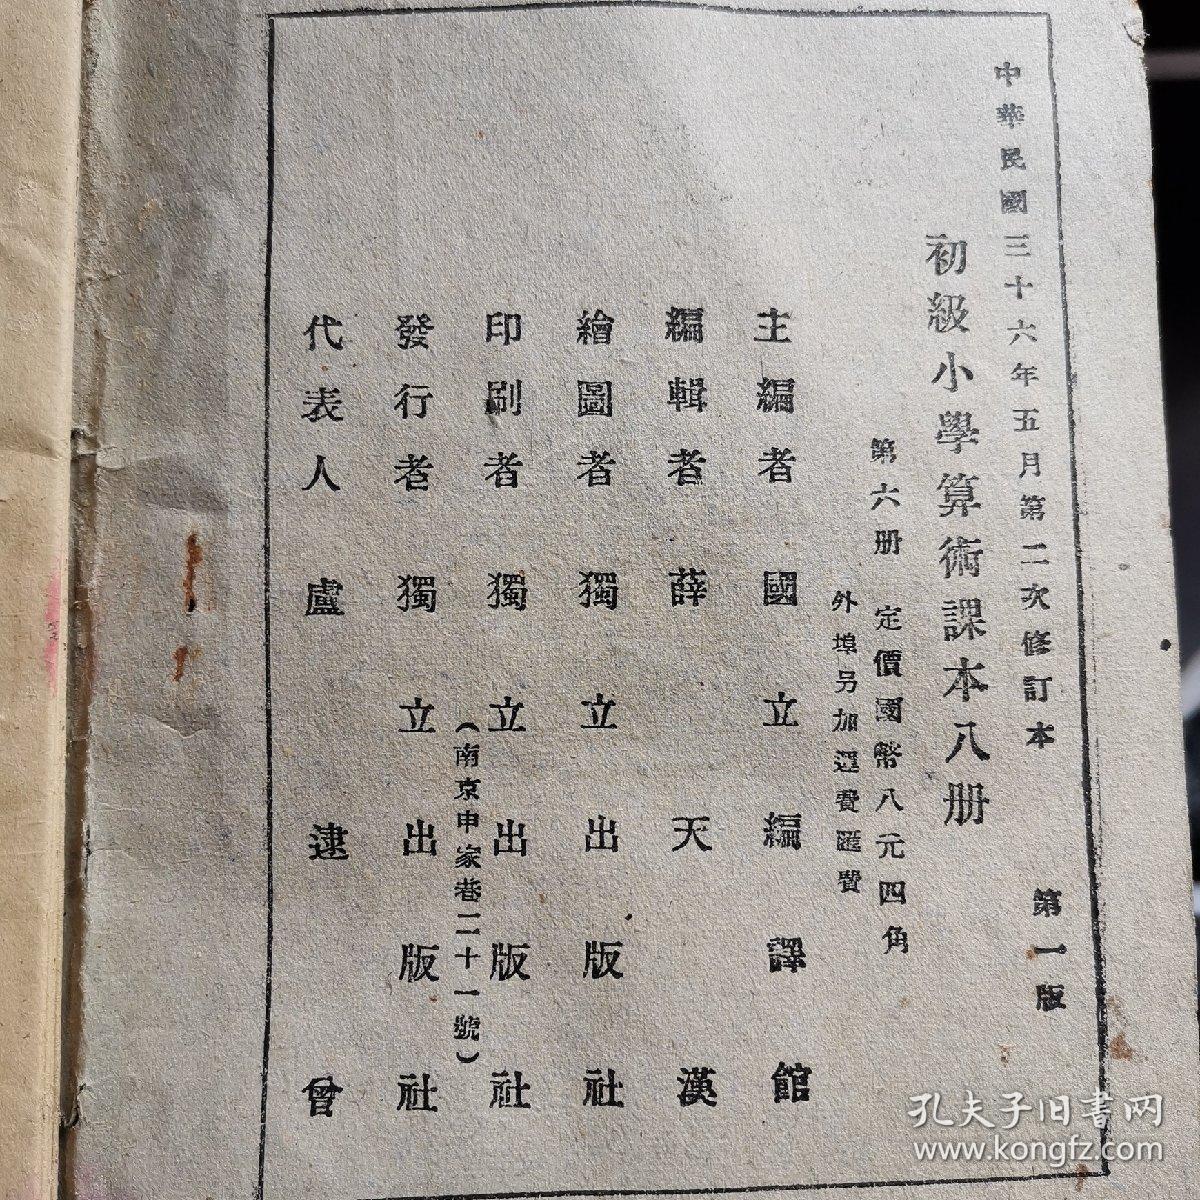 中華民國三十六年五月第二次修訂本　第一版
初級小學算術課本八册
第六册　定價國幣八元四角
外埠另加運費匯費
主編者　國立編譯館
編輯者　薛天漢
繪圖者　獨立出版社
印刷者　獨立出版社
（南京申家巷二十一號）
發行者　獨立出版社
代表人　盧逮曾
孔夫子旧书网
www.kongfz.com